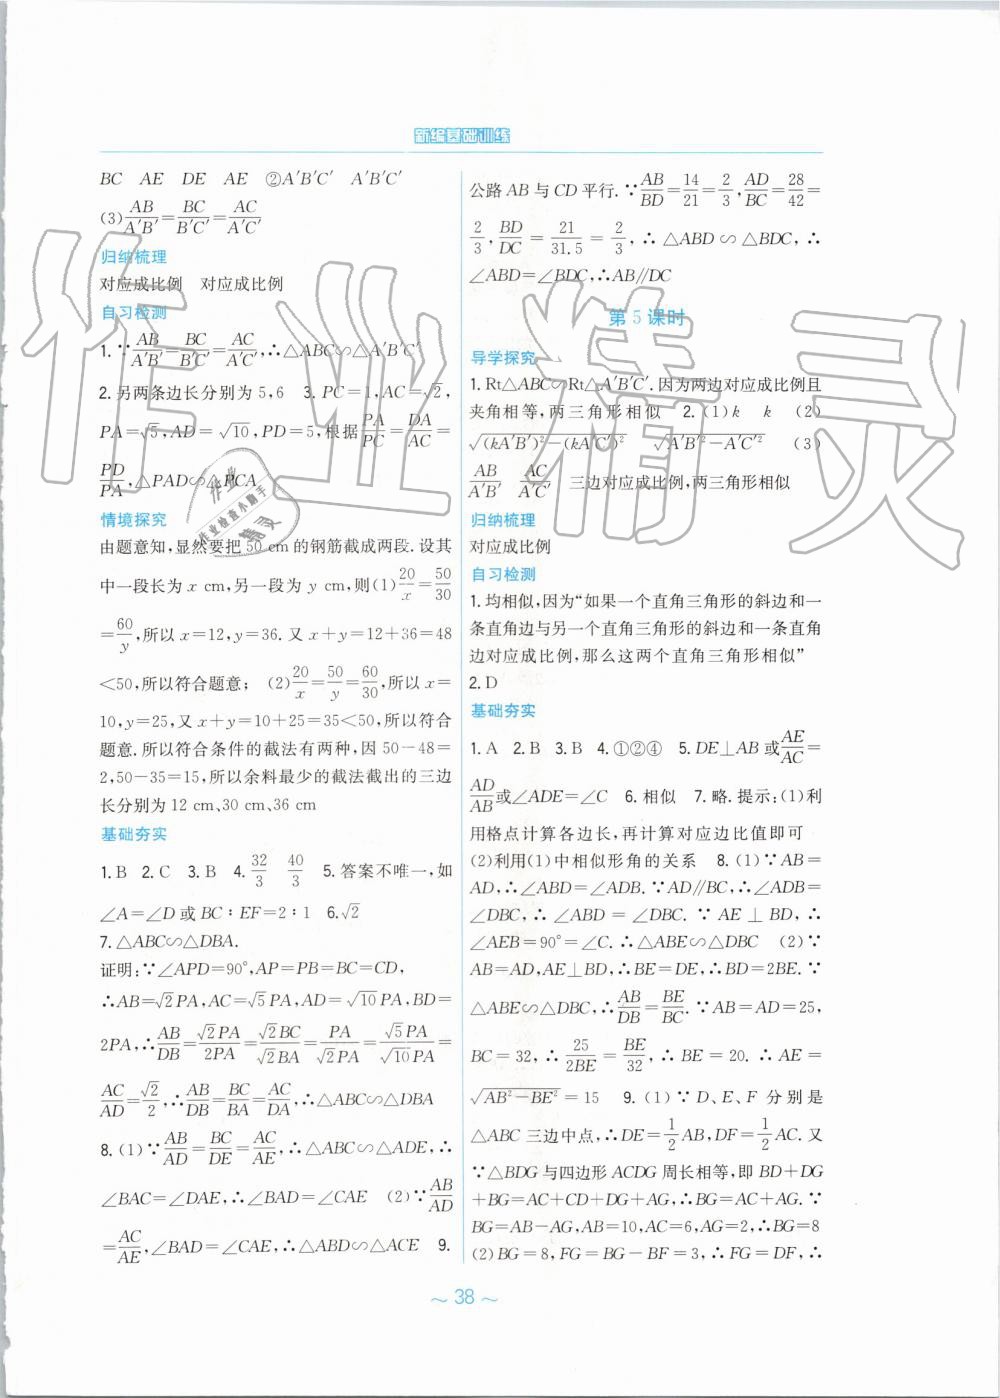 新编基础训练
BC　AE　DE　AE　②A′B′C′　A′B′C′
(3)AB/A′B′=BC/B′C′=AC/A′C′
归纳梳理
对应成比例　对应成比例
自习检测
1.∵AB/A′B′=BC/B′C′=AC/A′C′,∴△ABC∽△A′B′C′
2.另两条边长分别为5,6　3.PC=1,AC=√2,
PA=√5,AD=√10,PD=5,根据PA/PC=DA/AC=
PD/PA,△PAD∽△PCA
情境探究
由题意知,显然要把50 cm的钢筋截成两段.设其
中一段长为x cm,另一段为y cm,则(1)20/x=50/30
=60/y,所以x=12,y=36.又x+y=12+36=48
<50,所以符合题意;(2)20/x=50/y=60/30,所以x=
10,y=25,又x+y=10+25=35<50,所以符合
题意.所以符合条件的截法有两种,因50-48=
2,50-35=15,所以余料最少的截法截出的三边
长分别为12 cm、30 cm、36 cm
基础夯实
1.B　2.C　3.B　4.32/3　40/3　5.答案不唯一,如
∠A=∠D或BC∶EF=2∶1　6.√2
7.△ABC∽△DBA.
证明:∵∠APD=90°,AP=PB=BC=CD,
∴AB=√2PA,AC=√5PA,AD=√10PA,BD=
2PA,∴AB/DB=√2PA/2PA=√2BC/√2BA=PA/√2PA=√5PA/√10PA=
AC/AD=√2/2,∴AB/DB=BC/BA=AC/DA,∴△ABC∽△DBA
8.(1)∵AB/AD=BC/DE=AC/AE,∴△ABC∽△ADE,∴
∠BAC=∠DAE,∴∠BAD=∠CAE　(2)∵AB/AD
=AC/AE,∠BAD=∠CAE,∴△ABD∽△ACE　9.
公路AB与CD平行.∵AB/BD=14/21=2/3,AD/BC=28/42=
2/3,BD/DC=21/31.5=2/3,∴△ABD∽△BDC,∴
∠ABD=∠BDC,∴AB//DC
第5课时
导学探究
1.Rt△ABC∽Rt△A′B′C′.因为两边对应成比例且
夹角相等,两三角形相似　2.(1)k　k　(2)
√(kA′B′)²-(kA′C′)²　√A′B′²-A′C′²　(3)
AB/A′B′　AC/A′C′　三边对应成比例,两三角形相似
归纳梳理
对应成比例
自习检测
1.均相似,因为“如果一个直角三角形的斜边和一
条直角边与另一个直角三角形的斜边和一条直角
边对应成比例,那么这两个直角三角形相似”
2.D
基础夯实
1.A　2.B　3.B　4.①②④　5.DE⊥AB或AE/AC=
AD/AB或∠ADE=∠C　6.相似　7.略.提示:(1)利
用格点计算各边长,再计算对应边比值即可
(2)利用(1)中相似形角的关系　8.(1)∵AB=
AD,∴∠ABD=∠ADB.∵AD//BC,∴∠ADB=
∠DBC,∴∠ABD=∠DBC.∵AE⊥BD,∴
∠AEB=90°=∠C.∴△ABE∽△DBC　(2)∵
AB=AD,AE⊥BD,∴BE=DE,∴BD=2BE.∵
△ABE∽△DBC,∴AB/DB=BE/BC.∵AB=AD=25,
BC=32,∴25/2BE=BE/32,∴BE=20.∴AE=
√AB²-BE²=15　9.(1)∵D、E、F分别是
△ABC三边中点,∴DE=1/2AB,DF=1/2AC.又
∵△BDG与四边形ACDG周长相等,即BD+DG
+BG=AC+CD+DG+AG,∴BG=AC+AG.∵
BG=AB-AG,AB=10,AC=6,AG=2,∴BG=8
(2)BG=8,FG=BG-BF=3,∴FG=DF,∴
~ 38 ~
作业精灵
作业
作业检查小助手
精灵